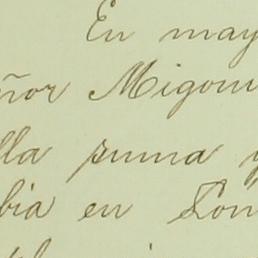 En may
ñor Migoni
lla suma y
bia en Lon